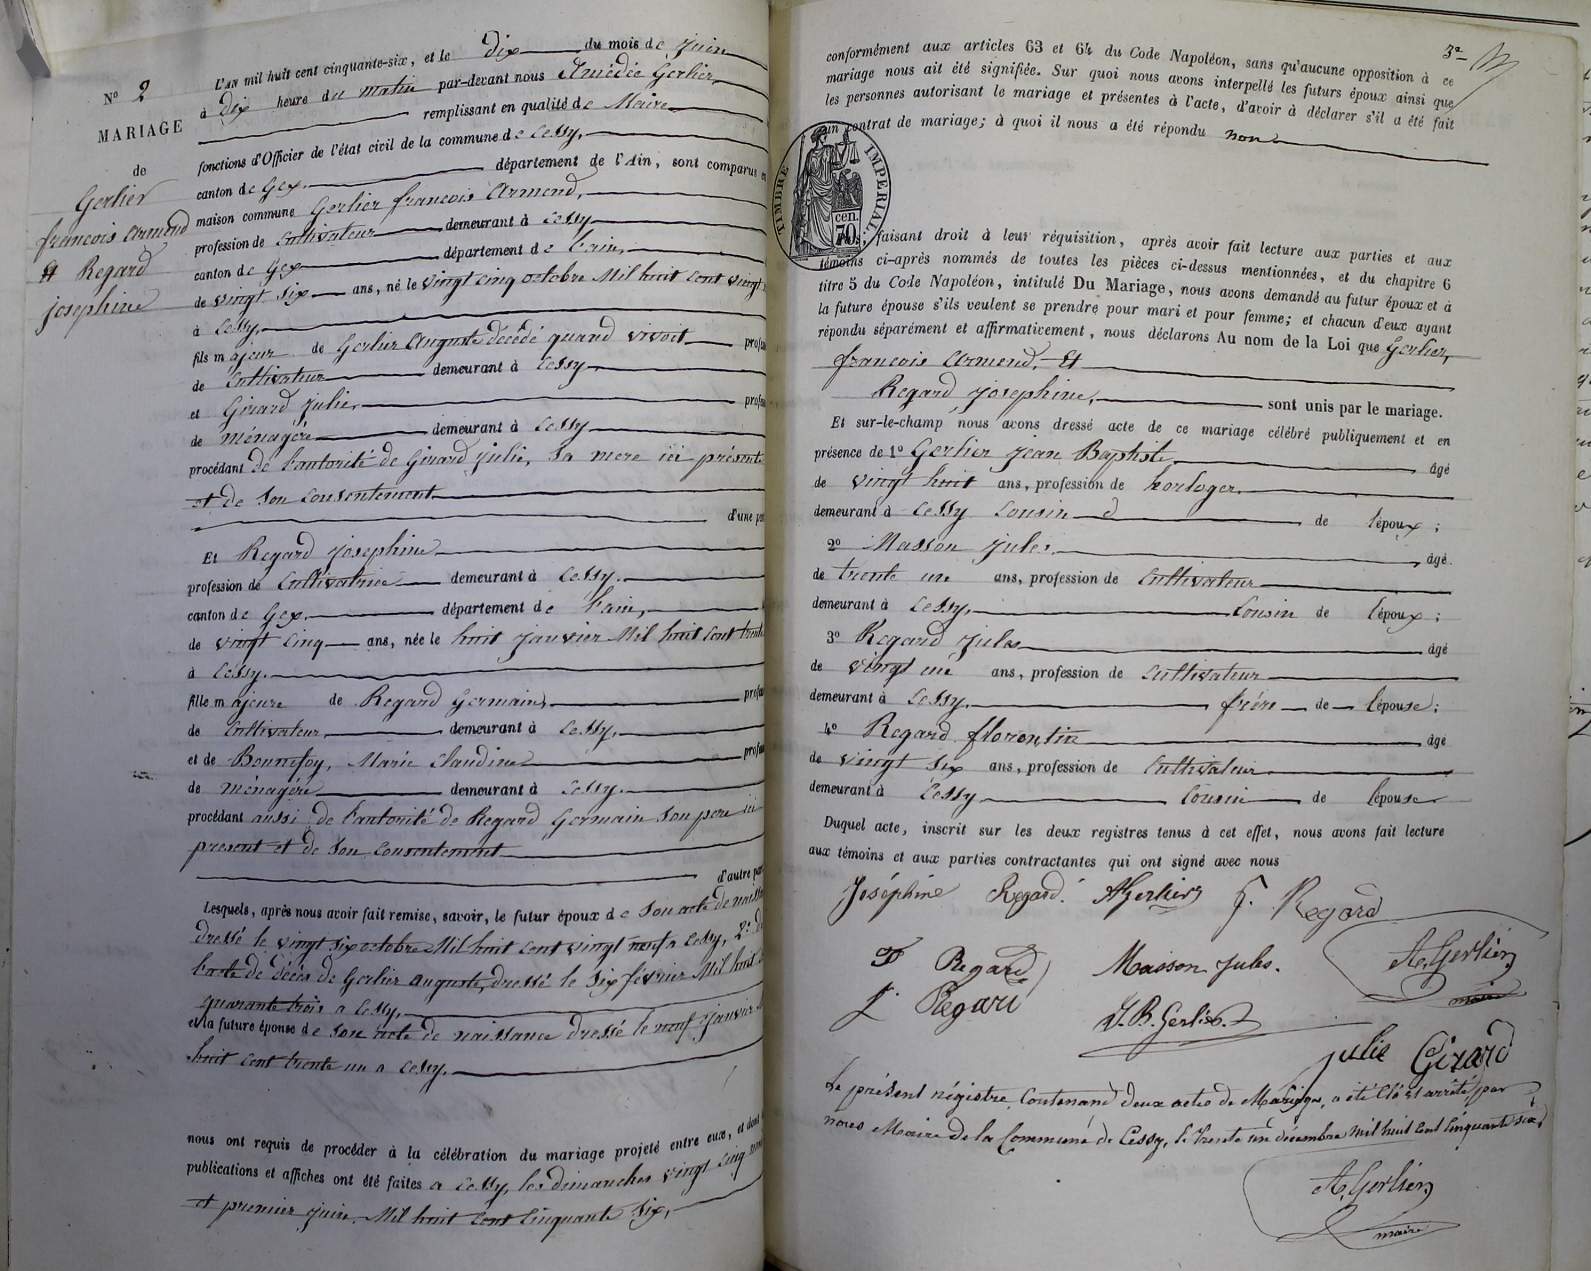 L'an mil huit cent cinquante-six, et le dix du mois de juin
Nº 2
à dix heure du matin par-devant nous Amédée Gerlier
remplissant en qualité de Maire
MARIAGE
fonctions d'Officier de l'état civil de la commune de Cessy,
de
canton de Gex. département de l'Ain, sont comparus en
Gerlier
maison commune Gerlier francois Armend,
francois Armend
profession de Cultivateur demeurant à Cessy
et Regard
canton de Gex département de l'ain,
josephine
de vingt six ans, né le vingt cinq octobre Mil huit cent vingt
à Cessy,
fils majeur de Gerlier Auguste décédé quand vivoit profes
de Cultivateur demeurant à Cessy
et Girard julie, profes
de ménagère demeurant à Cessy
procédant de l'autorité de Girard julie, sa mere ici présente
et de son consentement
d'une par
Et Regard josephine
profession de Cultivatrice demeurant à Cessy.
canton de Gex. département de l'ain,
de vingt cinq ans, née le huit janvier Mil huit cent trente
à Cessy.
fille majeure de Regard Germain, profes
de Cultivateur demeurant à Cessy,
et de Bonnefoy, Marie Claudine profes
de ménagère demeurant à Cessy.
procédant aussi de l'autorité de Regard Germain son pere ici
present et de son consentement
d'autre par
Lesquels, après nous avoir fait remise, savoir, le futur époux de son acte de naiss
dressé le vingt six octobre Mil huit cent vingt neuf a Cessy, 2º d
l'acte de décès de Gerlier auguste, dressé le six février Mil huit
quarante trois a Cessy,
et la future épouse de son acte de naissance dressé le neuf janvier
huit cent trente un a Cessy,
nous ont requis de procéder à la célébration du mariage projeté entre eux, et dont
publications et affiches ont été faites a Cessy, les dimanches vingt cinq
et premier juin Mil huit cent cinquante six,
3e
conformément aux articles 63 et 64 du Code Napoléon, sans qu'aucune opposition à ce
mariage nous ait été signifiée. Sur quoi nous avons interpellé les futurs époux ainsi que
les personnes autorisant le mariage et présentes à l'acte, d'avoir à déclarer s'il a été fait
un contrat de mariage; à quoi il nous a été répondu non
TIMBRE IMPERIAL
cen.
70
faisant droit à leur réquisition, après avoir fait lecture aux parties et aux
témoins ci-après nommés de toutes les pièces ci-dessus mentionnées, et du chapitre 6
titre 5 du Code Napoléon, intitulé Du Mariage, nous avons demandé au futur époux et à
la future épouse s'ils veulent se prendre pour mari et pour femme; et chacun d'eux ayant
répondu séparément et affirmativement, nous déclarons Au nom de la Loi que Gerlier,
francois Armend. Et
Regard josephine, sont unis par le mariage.
Et sur-le-champ nous avons dressé acte de ce mariage célébré publiquement et en
présence de 1º Gerlier jean Baptiste, âgé
de vingt huit ans, profession de horloger
demeurant à Cessy Cousin de l'époux;
2º Masson jules. âgé
de trente un ans, profession de Cultivateur
demeurant à Cessy, Cousin de l'époux;
3º Regard jules âgé
de vingt un ans, profession de Cultivateur
demeurant à Cessy. frére de l'épouse;
4º Regard florentin âgé
de vingt six ans, profession de Cultivateur
demeurant à Cessy Cousin de l'épouse
Duquel acte, inscrit sur les deux registres tenus à cet effet, nous avons fait lecture
aux témoins et aux parties contractantes qui ont signé avec nous
Joséphine Regard. A Gerlier G. Regard
F Regard Masson jules. A. Gerlier
maire
J. Regard J. B. Gerlier.
julie Girard
Le présent régistre, Contenant deux actes de Mariage, a été Clos et arrêté par
nous Maire de la Commune de Cessy, le trente un décembre mil huit cent cinquante six
A. Gerlier
maire